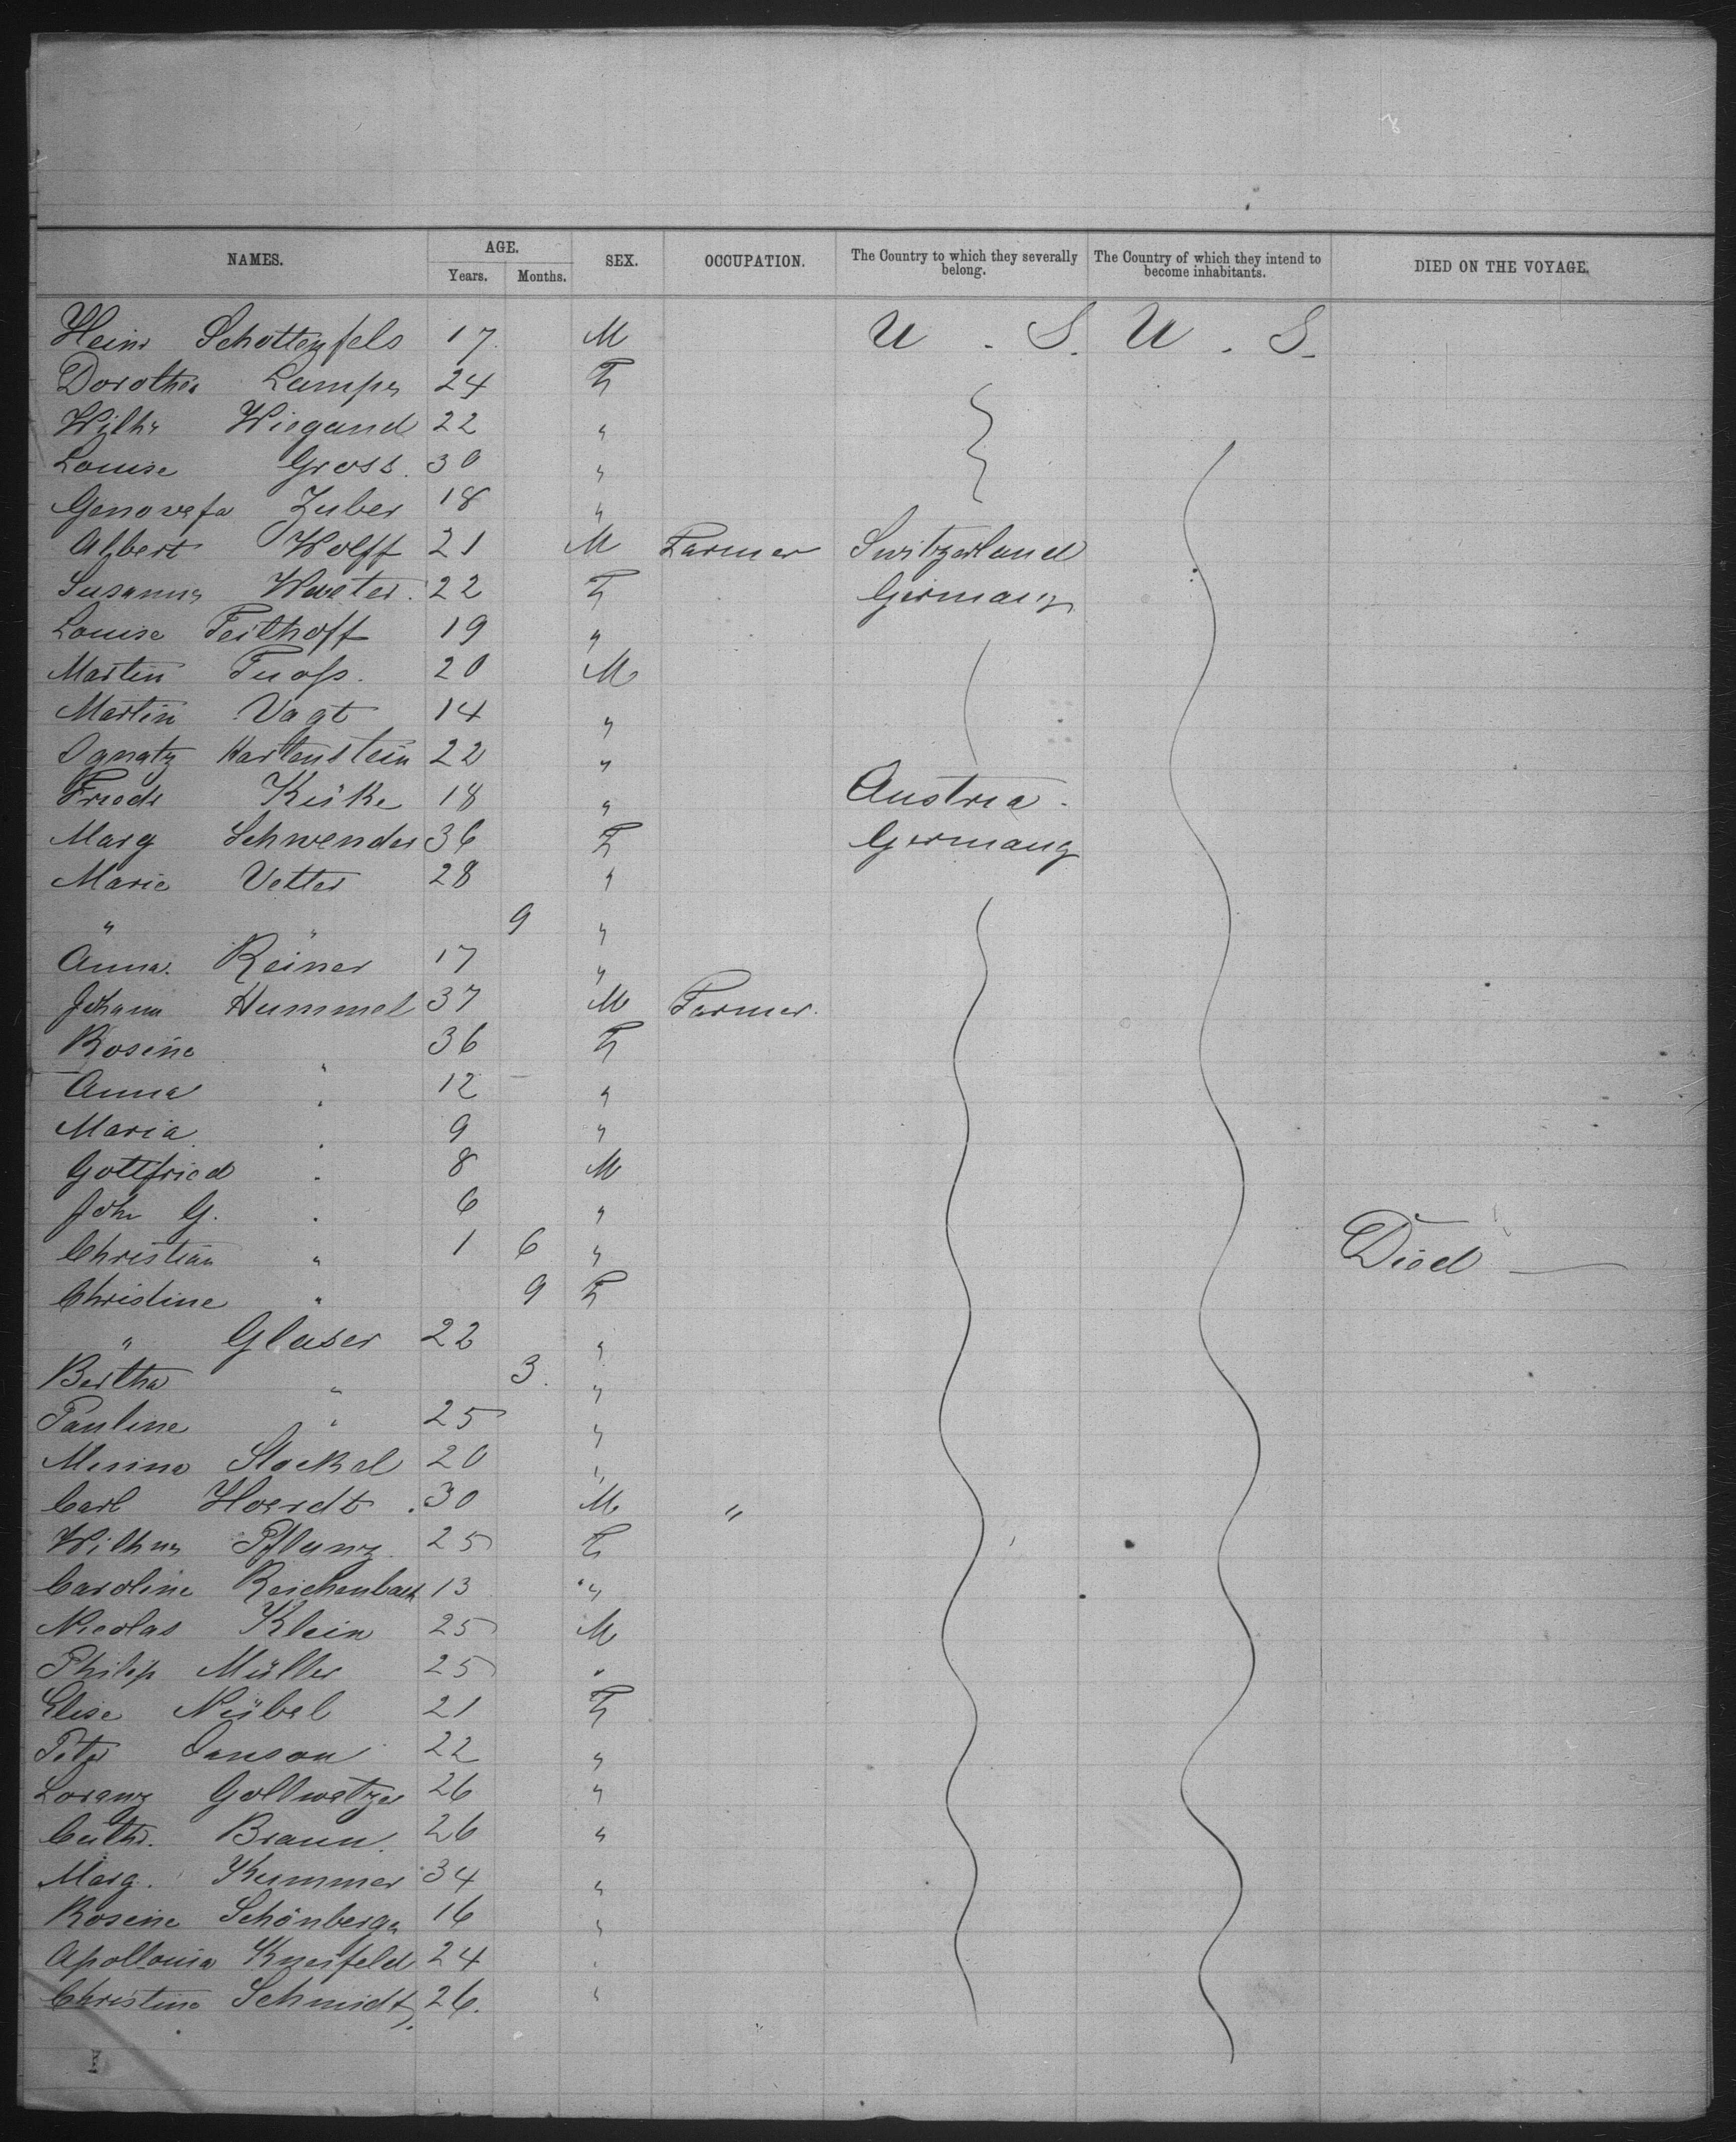 NAMES. AGE. SEX. OCCUPATION. The Country to which they severally belong. The Country of which they intend to become inhabitants. DIED ON THE VOYAGE.
Years. Months.
Heinr Schottenfels 17. M U. S. U. S.
Dorothea Lampe 24 F
Wilhe Wiegand 22 "
Louise Gross. 30 "
Genovefa Zuber 18 "
Albert Wolff 21 M Farmer Switzerland
Susanna 22 F Germany
Louise Feilhoff 19 "
Martin 20 M
Martin Vagt 14 "
Ignatz Hartenstein 22 "
Friedr 18 " Austria.
Marg Schwender 36 F Germany
Marie Vetter 28 "
" " 9 "
Anna. Reiner 17 "
Johann Hummel 37 M Farmer.
Rosine " 36 F
Anna " 12 "
Maria " 9 "
Gottfried " 8 M
John G. " 6 "
Christian " 1 6 " Died
Christine " 9 F
" Glaser 22 "
Bertha " 3. "
Pauline " 25 "
Stockel 20 "
Carl Hoerdt. 30 M "
Pflanz 25 F
Caroline Reichenbach 13 "
Nicolas Klein 25 M
Philip Müller 25 "
Elise Nübel 21 F
Peter Janson 22 "
Lorenz Gollwitzer 26 "
Cathr. Braun. 26 "
Marg. Kummer 34 "
Rosine Schönberger 16 "
Apollonia Kneifeld 24 "
Christine Schmidt 26. "